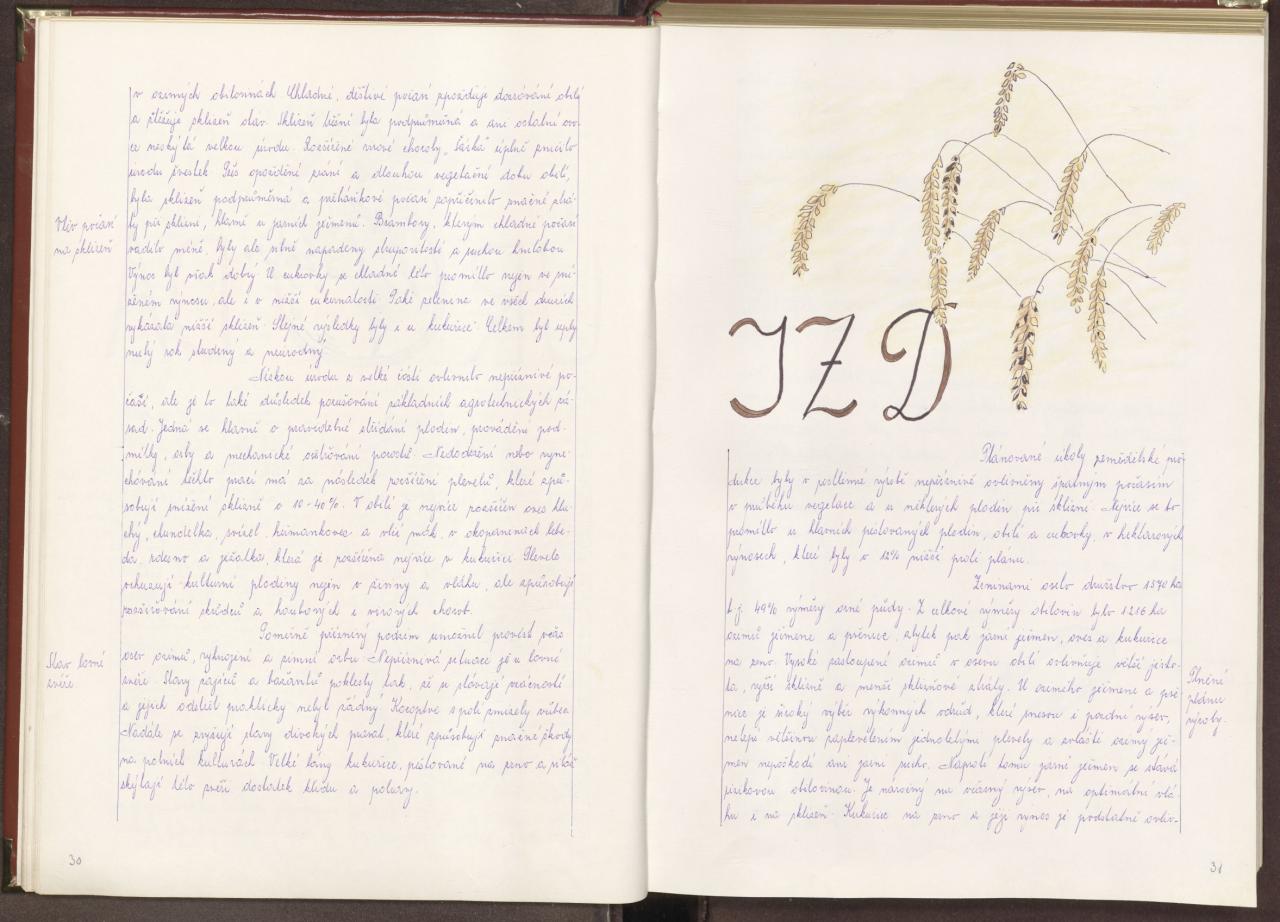 v ozimých obilovinách. Chladné, deštivé počasí zpozďuje dozrávání obilí
a ztěžuje sklizeň otav. Sklizeň třešní byla podprůměrná a ani ostatní ovo-
ce neskýtá velkou úrodu. Rozšířené virové choroby "Šarka" úplně zničilo
úrodu švestek. Přes opoždění zrání a dlouhou vegetační dobu obilí,
byla sklizeň podprůměrná a přeháňkové počasí zapříčinilo značné ztrá-
ty při sklizni, hlavně u jarních ječmenů. Brambory, kterým chladné počasí
vadilo méně, byly ale silně napadeny strupovitostí a suchou hnilobou.
Výnos byl však dobrý. U cukrovky se chladné léto promítlo nejen ve sní-
ženém výnosu, ale i v nižší cukernatosti. Také zelenina ve všech druzích
vykázala nižší sklizeň. Stejné výsledky byly i u kukuřice. Celkem byl uply-
nulý rok studený a neúrodný.
Vliv počasí
na sklizeň
Nízkou úrodu z velké části ovlivnilo nepříznivé po-
časí, ale je to také důsledek porušování základních agrotechnických zá-
sad. Jedná se hlavně o pravidelné střídání plodin, provádění pod-
mítky, orby a mechanické ošetřování porostů. Nedodržení nebo vyne-
chávání těchto prací má za následek rozšíření plevelů, které způ-
sobují snížení sklizně o 10-40%. V obilí je nejvíce rozšířen oves hlu-
chý, chundelka, svízel, heřmánkovec a vlčí mák, v okopaninách lebe-
da, rdesno a ježatka, která je rozšířena nejvíce v kukuřici. Plevele
ochuzují kulturní plodiny nejen o živiny a vláhu, ale způsobují
rozšiřování škůdců a houbových i virových chorob.
Poměrně příznivý podzim umožnil provést včas
osev ozimů, vyhnojení a zimní orbu. Nepříznivá situace je u lovné
zvěře. Stavy zajíců a bažantů poklesly tak, že se stávají vzácností
a jejich odstřel prakticky nebyl žádný. Koroptve z polí zmizely vůbec.
Nadále se zvyšují stavy divokých prasat, které způsobují značné škody
na polních kulturách. Velké lány kukuřice, pěstované na zrno a siláž
skýtají této zvěři dostatek klidu a potravy.
Stav lovné
zvěře.
30
JZD
Plánované úkoly zemědělské pro-
dukce byly v rostlinné výrobě nepříznivě ovlivněny špatným počasím
v průběhu vegetace a u některých plodin při sklizni. Nejvíce se to
promítlo u hlavních pěstovaných plodin, obilí a cukrovky, v hektarových
výnosech, které byly o 12% nižší proti plánu.
Zrninami oselo družstvo 1570 ha
t.j. 49% výměry orné půdy. Z celkové výměry obilovin bylo 1216 ha
ozimů ječmene a pšenice, zbytek pak jarní ječmen, oves a kukuřice
na zrno. Vysoké zastoupení ozimů v osevu obilí ovlivňuje větší jisto-
ta, vyšší sklizně a menší sklizňové ztráty. U ozimého ječmene a pše-
nice je široký výběr výkonných odrůd, které snesou i pozdní výsev,
netrpí většinou zaplevelením jednoletými plevely a zvláště ozimý ječ-
men nepoškodí ani jarní sucho. Naproti tomu jarní ječmen se stává
rizikovou obilovinou. Je náročný na včasný výsev, na optimální vlá-
hu i na sklizeň. Kukuřice na zrno a její výnos je podstatně ovliv-
Plnění
plánu
výroby.
31